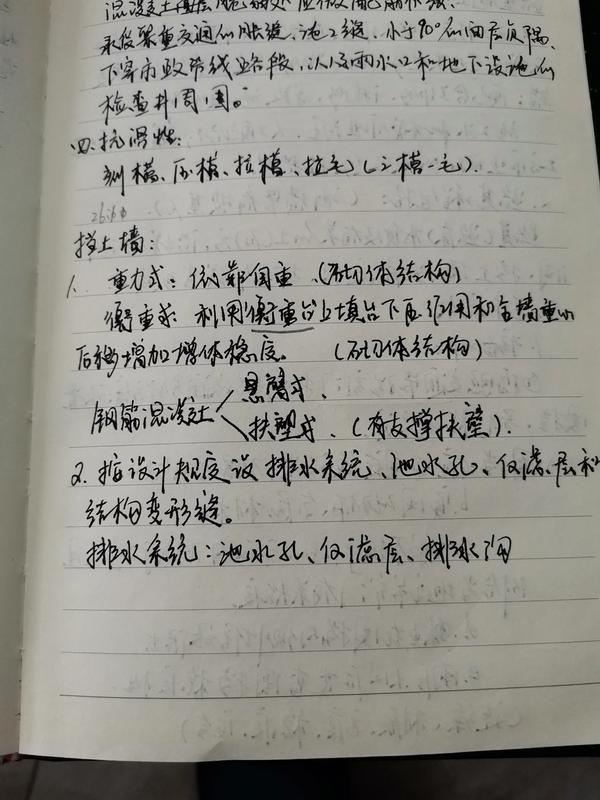 混凝土面层
承受繁重交通的胀缝、施工缝,小于90°的面层角隅、
下穿市政管线路段,以及雨水口和地下设施的
检查井周围。
四、抗滑性:
刻槽、压槽、拉槽、拉毛(三槽一毛).
挡土墙:
1、重力式:依靠自重(砌体结构)
衡重式:利用衡重台上填土下压作用和全墙重心
后移增加墙体稳定。(砌体结构)
钢筋混凝土
悬臂式、
扶壁式、(有支撑扶壁).
2.按设计规定设排水系统、泄水孔、反滤层和
结构变形缝。
排水系统:泄水孔、反滤层、排水沟